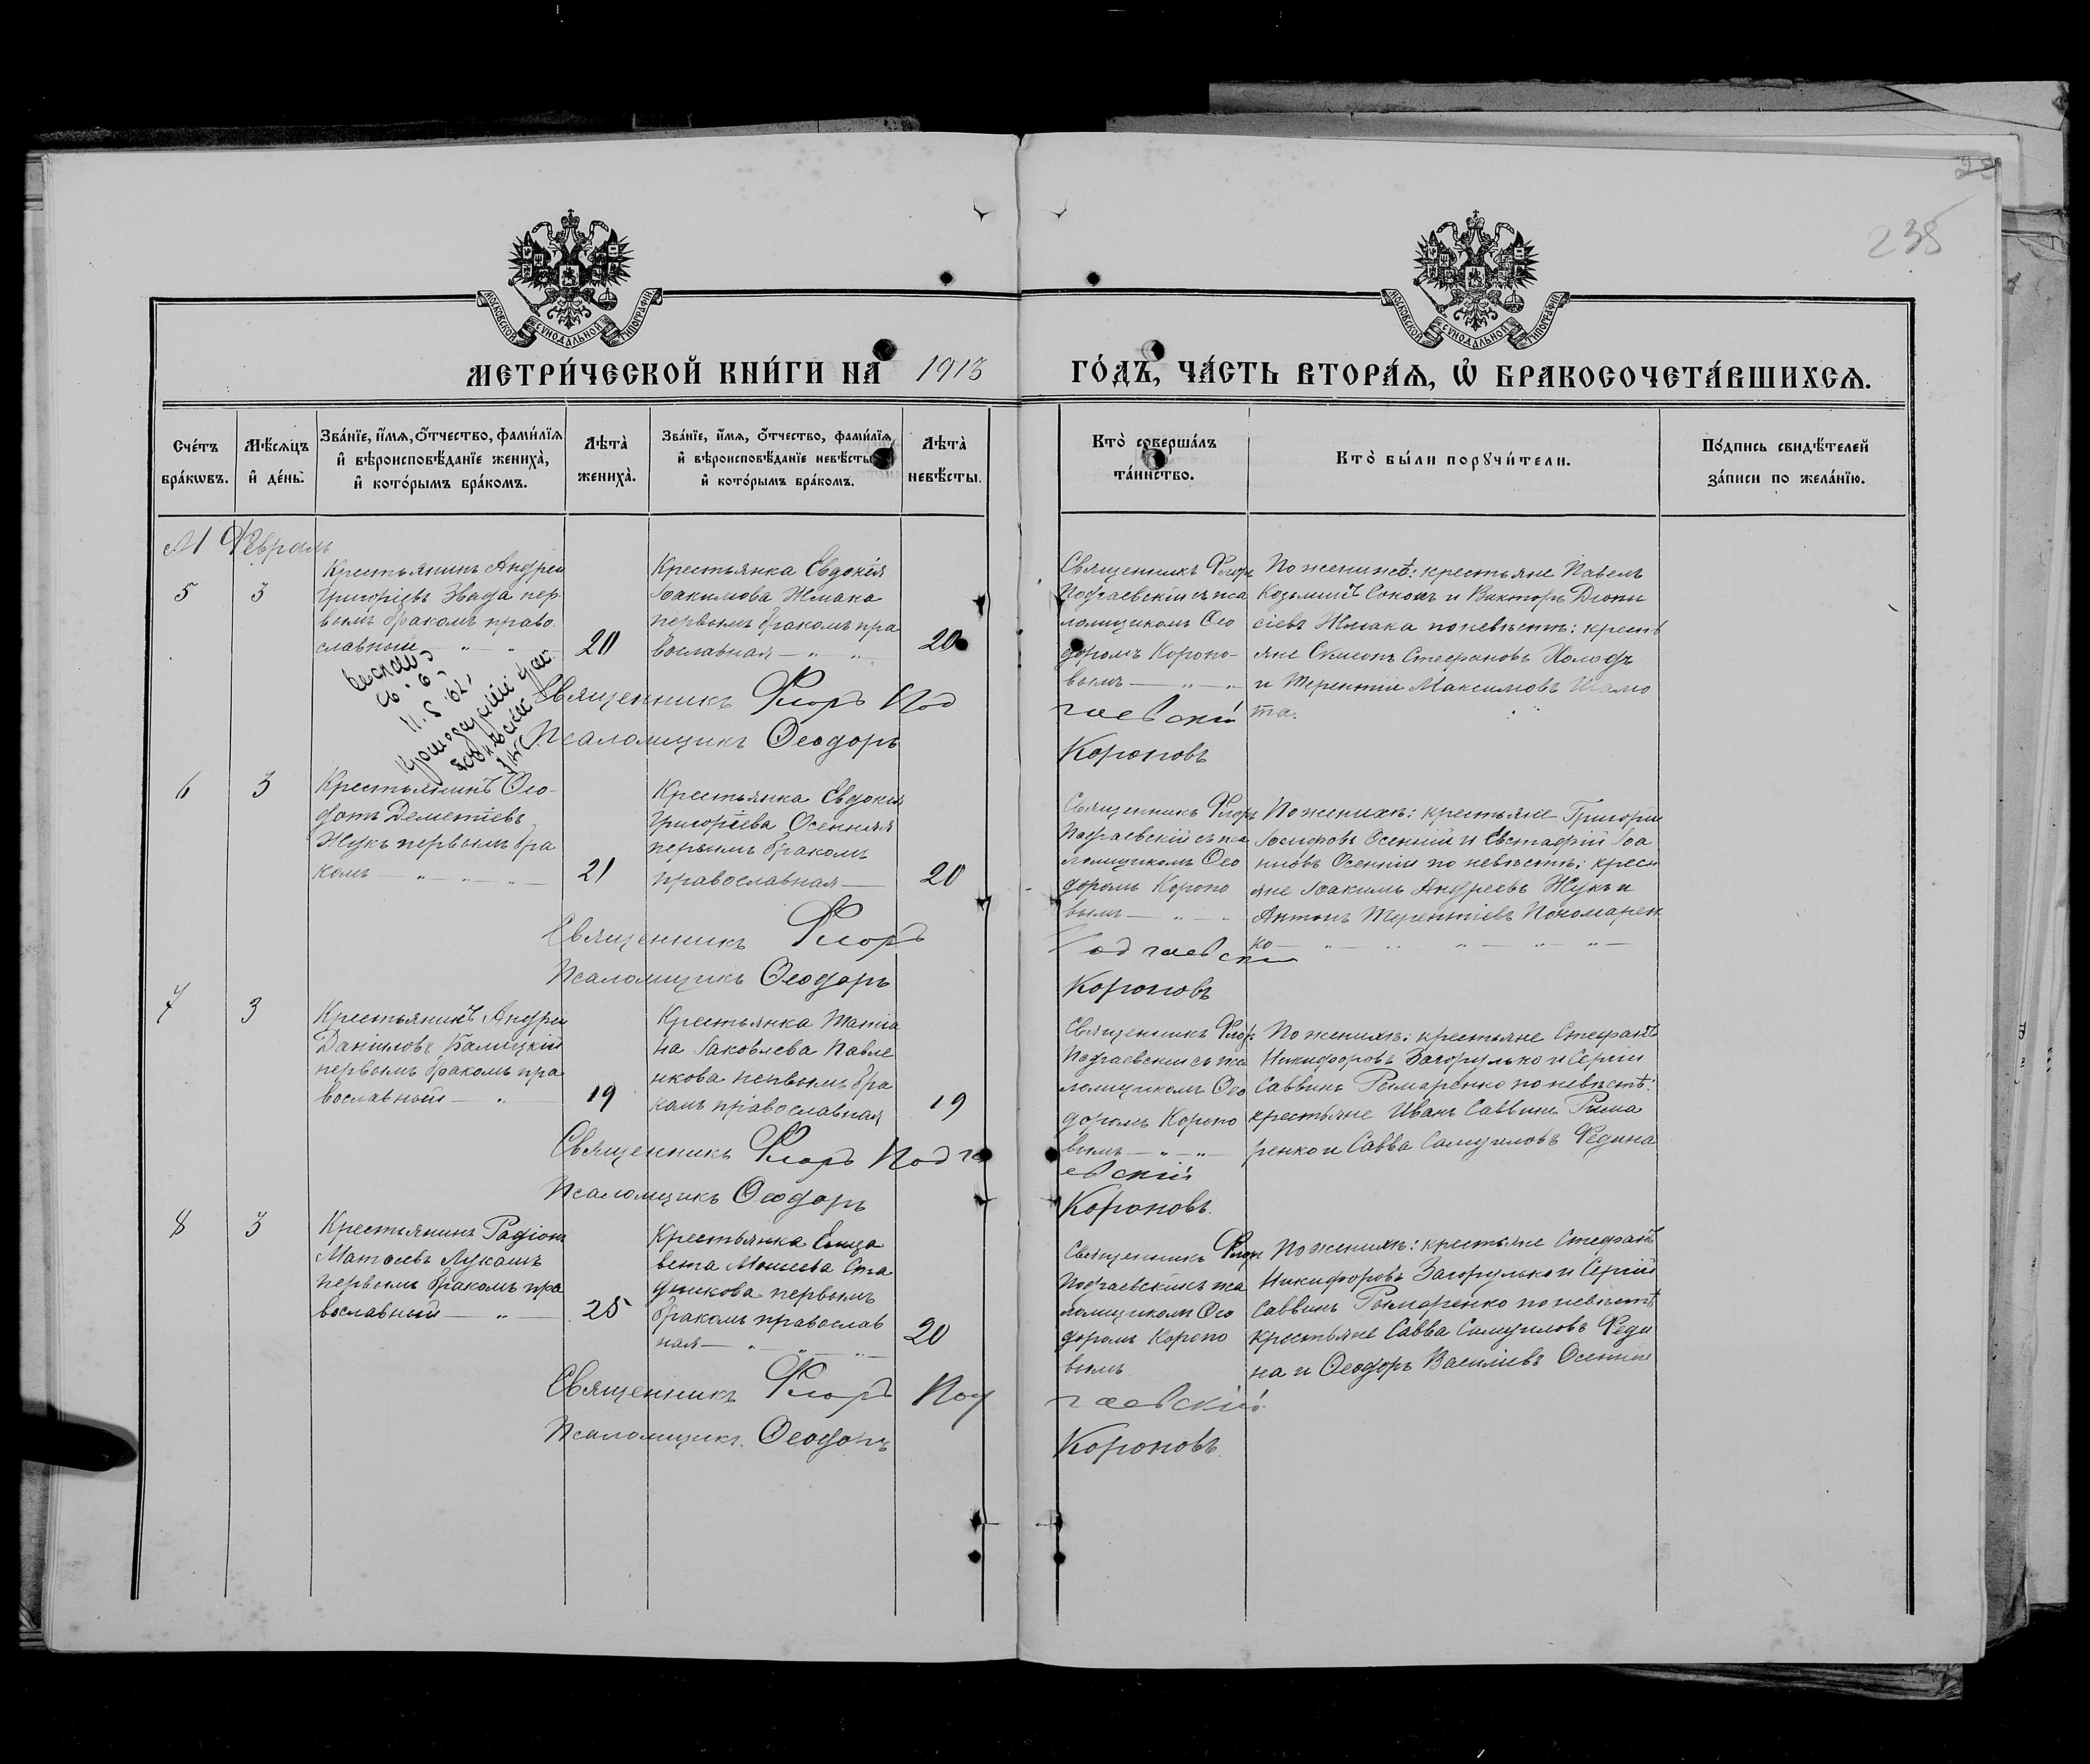 235
МОСКОВСКОЙ СѴНОДАЛЬНОЙ ТИПОГРАФІИ
МОСКОВСКОЙ СѴНОДАЛЬНОЙ ТИПОГРАФІИ
МЕТРИ́ЧЕСКОЙ КНИ́ГИ НА 1913 ГО́ДЪ, ЧА́СТЬ ВТОРА́Ѧ, Ѡ҆ БРАКОСОЧЕТА́ВШИХСѦ.
Сче́тъ бра́кѡвъ.
Мѣ́сѧцъ и҆ де́нь.
Зва́нїе, и҆́мѧ, ѻ҆́тчество, фамі́лїѧ и҆ вѣроисповѣ́данїе жениха̀, и҆ кото́рымъ бра́комъ.
Лѣта̀ жениха̀.
Зва́нїе, и҆́мѧ, ѻ҆́тчество, фамі́лїѧ и҆ вѣроисповѣ́данїе невѣ́сты, и҆ кото́рымъ бра́комъ.
Лѣта̀ невѣ́сты.
Кто̀ соверша́лъ та́инство.
Кто̀ бы́ли порꙋчи́тели.
По́дпись свидѣ́телей за́писи по жела́нїю.
Февраль
5
3
Крестьянинъ Андрей
Григоріевъ Звада пер
вымъ бракомъ право
славный
20
Крестьянка Евдокія
Іоакимова Жмака
первымъ бракомъ пра
вославная
20
Священникъ Флоръ
Подгаевскій съ пса
ломщикомъ Ѳео
доромъ Короно-
вымъ
По женихѣ: крестьяне Павелъ
Козьминъ Соколъ и Викторъ Діони
сіевъ Жмака по невѣстѣ: кресть
яне Симеонъ Стефановъ Холодъ
и Терентій Максимовъ Шамо
та.
Священникъ Флоръ Подгаевскій
Псаломщикъ Ѳеодоръ Короновъ
6
3
Крестьянинъ Ѳео-
дотъ Дементіевъ
Жукъ первымъ бра
комъ
21
Крестьянка Евдокія
Григоріева Осенняя
первымъ бракомъ
православная
20
Священникъ Флоръ
Подгаевскій съ пса
ломщикомъ Ѳео
доромъ Короно
вымъ
По женихѣ: крестьяне Григорій
Іосифовъ Осенній и Евстафій Іоа
нновъ Осенній по невѣстѣ: крест
яне Іоакимъ Андреевъ Жукъ и
Антонъ Терентіевъ Пономарен
ко
Священникъ Флоръ Подгаевскій
Псаломщикъ Ѳеодоръ Короновъ
7
3
Крестьянинъ Андрей
Даниловъ Балицкій
первымъ бракомъ пра
вославный
19
Крестьянка Татіа
на Іаковлева Павле
нкова первымъ бра
комъ православная
19
Священникъ Флоръ
Подгаевскій съ пса
ломщикомъ Ѳео
доромъ Короно
вымъ
По женихѣ: крестьяне Стефанъ
Никифоровъ Загорулько и Сергій
Саввинъ Рымаренко по невѣстѣ:
крестьяне Иванъ Саввинъ Рыма
ренко и Савва Самуиловъ Федина
Священникъ Флоръ Подгаевскій
Псаломщикъ Ѳеодоръ Короновъ.
8
3
Крестьянинъ Радіонъ
Матѳеевъ Лукашъ
первымъ бракомъ пра
вославный
25
Крестьянка Елиза
вета Моисеева Ста
дникова первымъ
бракомъ православ
ная
20
Священникъ Флоръ
Подгаевскій съ пса
ломщикомъ Ѳео
доромъ Короно
вымъ
По женихѣ: крестьяне Стефанъ
Никифоровъ Загорулько и Сергій
Саввинъ Рымаренко по невѣстѣ
крестьяне Савва Самуиловъ Феди
на и Ѳеодоръ Василіевъ Осенній
Священникъ Флоръ Подгаевскій.
Псаломщикъ Ѳеодоръ Короновъ.